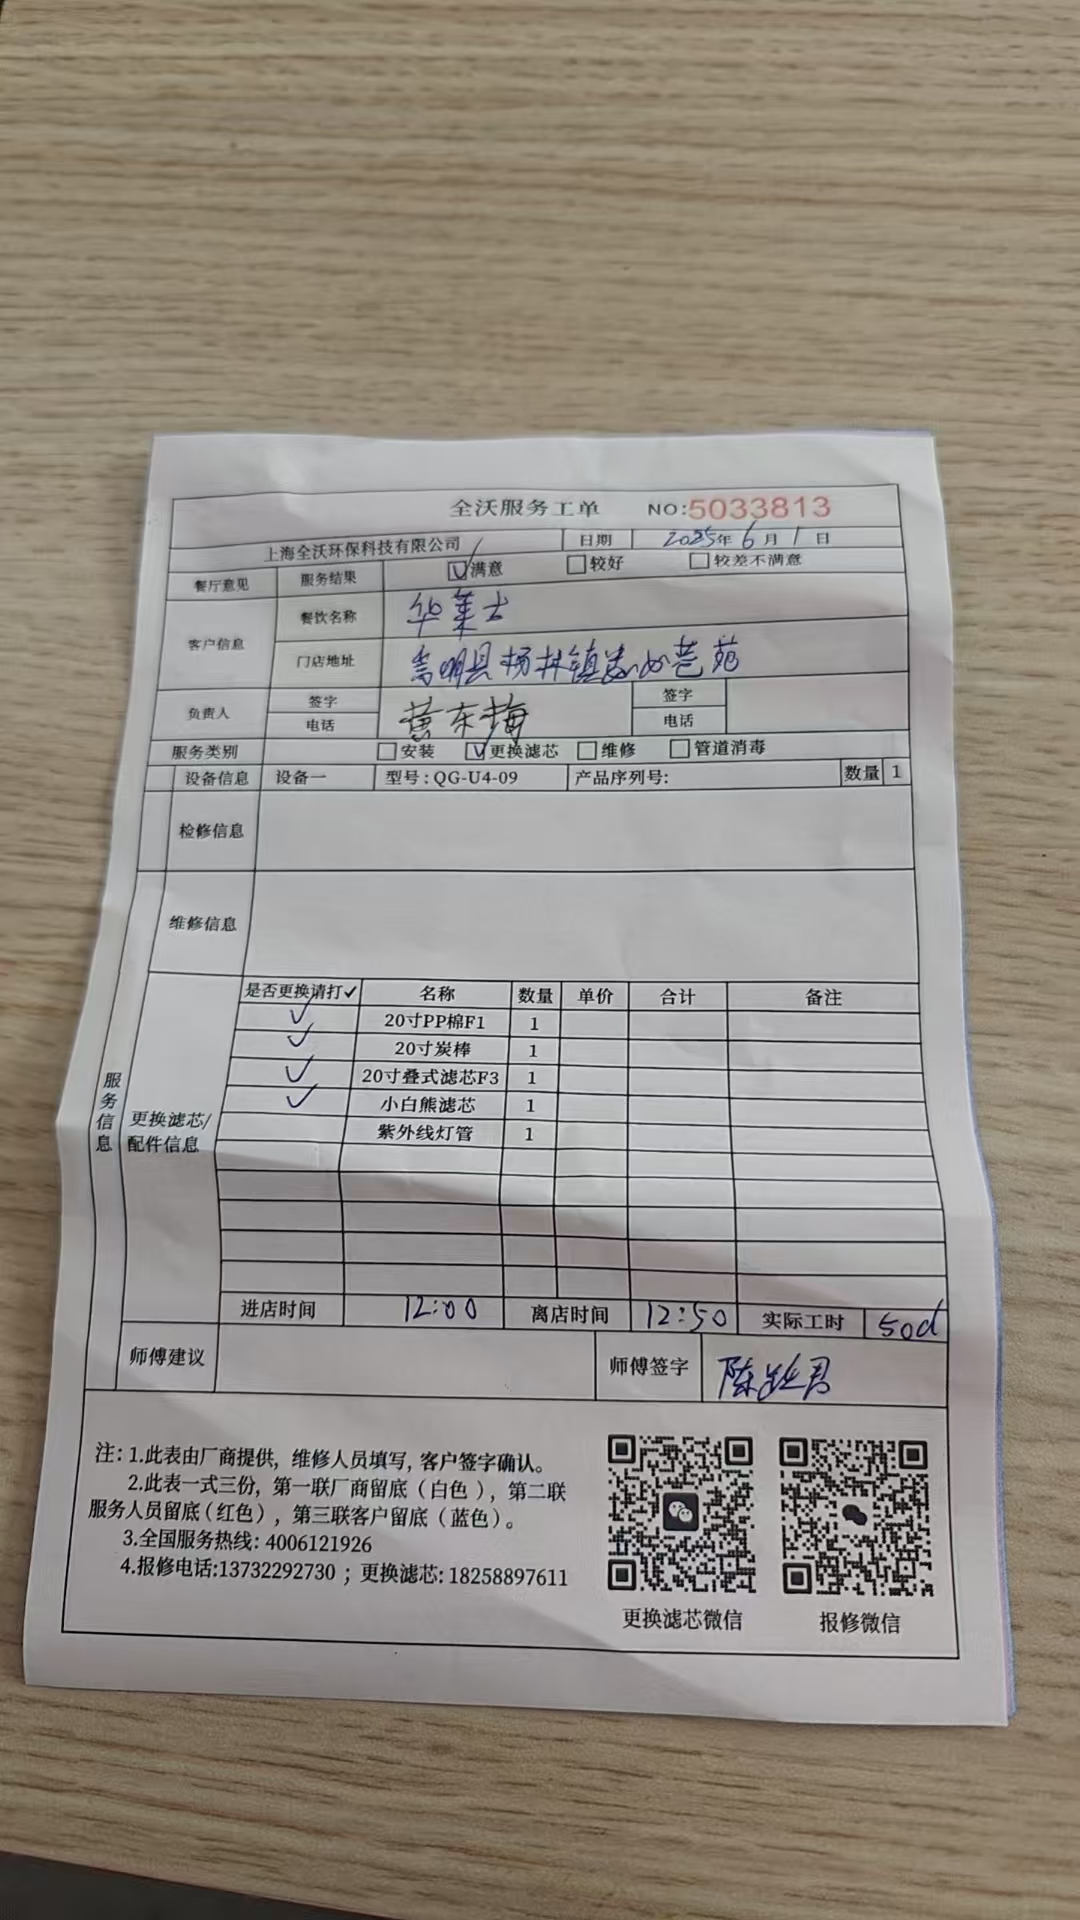 全沃服务工单 NO:5033813
上海全沃环保科技有限公司 日期 2025年6月1日
餐厅意见 服务结果 ☑满意 □较好 □较差不满意
客户信息 餐饮名称 华莱士
门店地址 嵩明县杨林镇 苑
负责人 签字 黄东梅 签字
电话 电话
服务类别 □安装 ☑更换滤芯 □维修 □管道消毒
设备信息 设备一 型号:QG-U4-09 产品序列号: 数量 1
检修信息
维修信息
服务信息
更换滤芯/配件信息
是否更换请打✓ 名称 数量 单价 合计 备注
✓ 20寸PP棉F1 1
✓ 20寸炭棒 1
✓ 20寸叠式滤芯F3 1
✓ 小白熊滤芯 1
紫外线灯管 1
进店时间 12:00 离店时间 12:50 实际工时
师傅建议 师傅签字 陈 君
注: 1.此表由厂商提供, 维修人员填写, 客户签字确认。
2.此表一式三份, 第一联厂商留底(白色), 第二联
服务人员留底(红色), 第三联客户留底(蓝色)。
3.全国服务热线: 4006121926
4.报修电话:13732292730 ; 更换滤芯: 18258897611
更换滤芯微信 报修微信